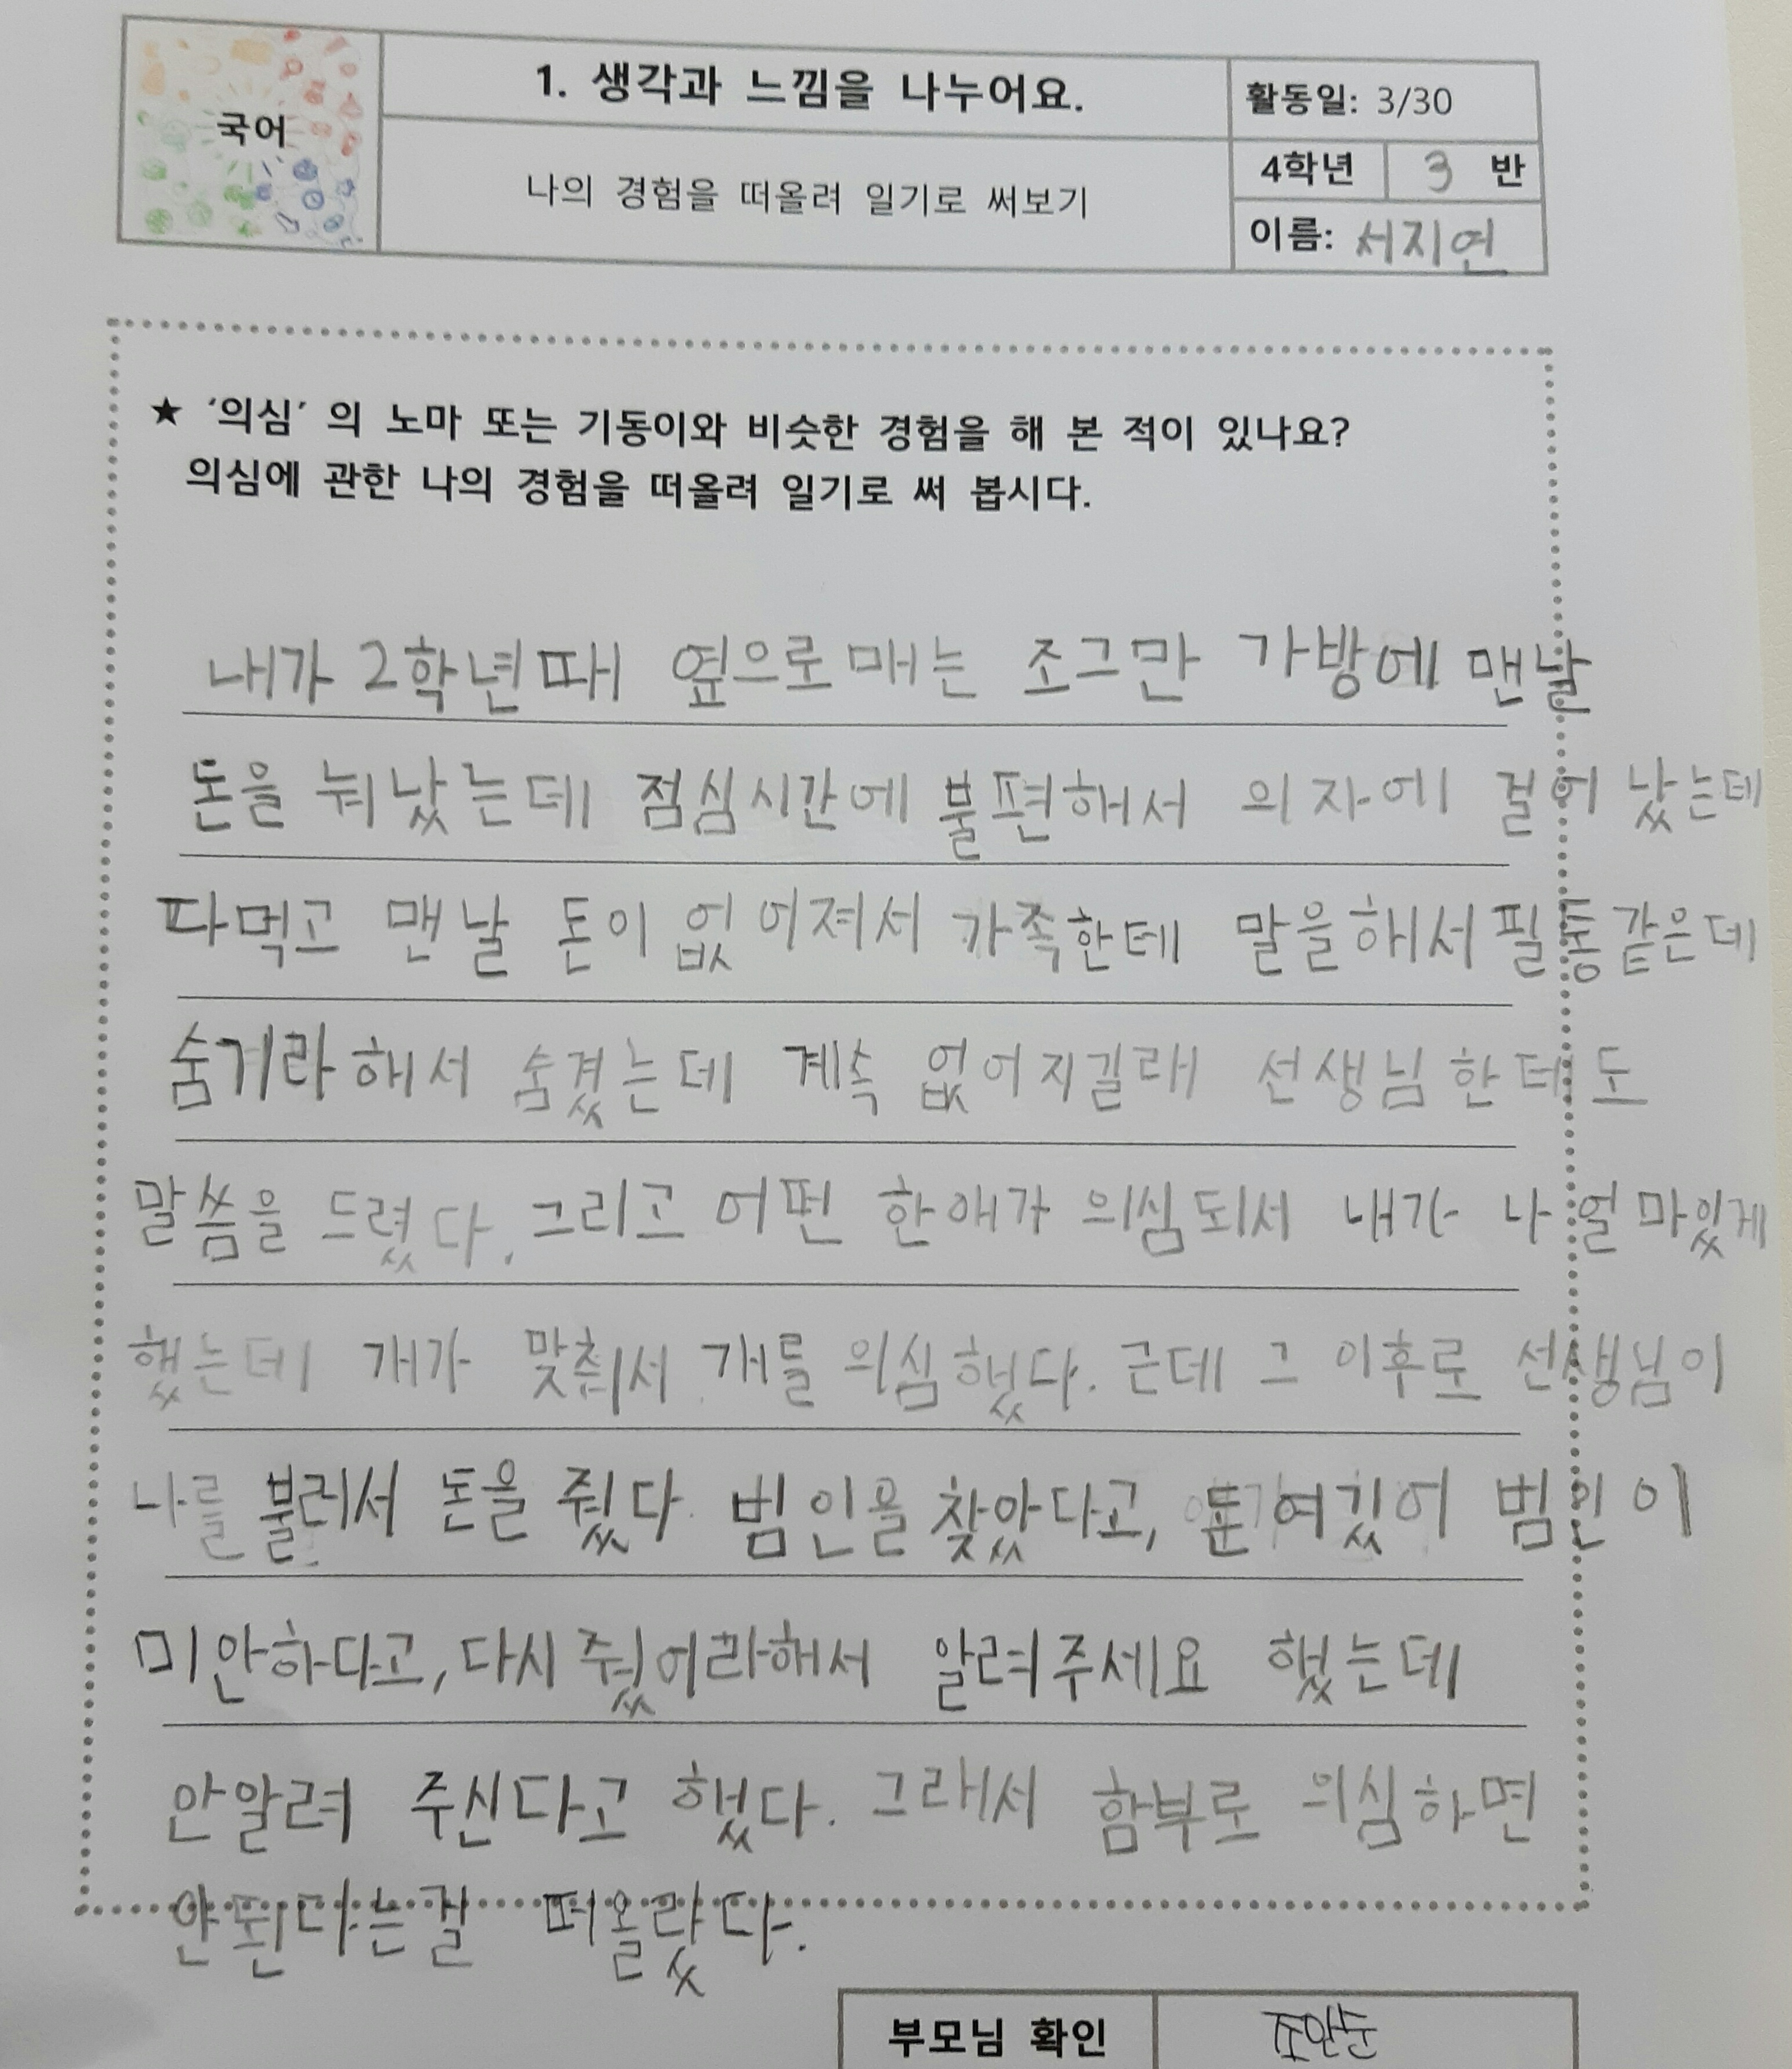 국어
1. 생각과 느낌을 나누어요.
활동일: 3/30
나의 경험을 떠올려 일기로 써보기
4학년 3 반
이름: 서지연
★ '의심' 의 노마 또는 기동이와 비슷한 경험을 해 본 적이 있나요?
의심에 관한 나의 경험을 떠올려 일기로 써 봅시다.
내가 2학년때 옆으로매는 조그만 가방에 맨날
돈을 눠났는데 점심시간에 불편해서 의자에 걸어 났는데
다먹고 맨날 돈이 없어져서 가족한테 말을해서 필통같은데
숨기라해서 숨겼는데 계속 없어지길래 선생님한테도
말씀을 드렸다. 그리고 어떤 한애가 의심되서 내가 나 얼마있게
했는데 개가 맞춰서 개를 의심했다. 근데 그 이후로 선생님이
나를 불러서 돈을 줬다. 범인을 찾았다고, 돈 여깄어 범인이
미안하다고, 다시 줬어라해서 알려주세요 했는데
안알려 주신다고 했다. 그래서 함부로 의심하면
안된다는걸 떠올랐다.
부모님 확인